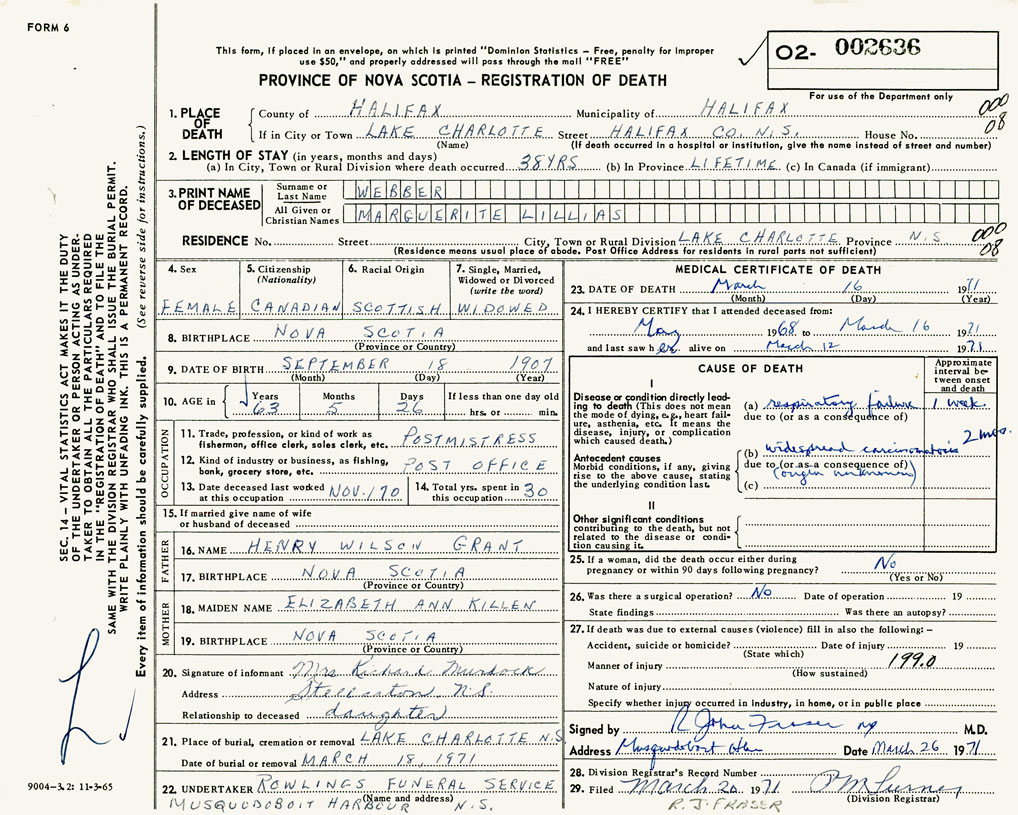 FORM 6
This form, if placed in an envelope, on which is printed "Dominion Statistics – Free, penalty for improper
use $50," and properly addressed will pass through the mail "FREE"
PROVINCE OF NOVA SCOTIA – REGISTRATION OF DEATH
O2- 002636
For use of the Department only
1. PLACE OF DEATH
County of HALIFAX Municipality of HALIFAX 000
If in City or Town LAKE CHARLOTTE Street HALIFAX CO. N.S. House No. 08
(Name) (If death occurred in a hospital or institution, give the name instead of street and number)
2. LENGTH OF STAY (in years, months and days)
(a) In City, Town or Rural Division where death occurred 38 YRS (b) In Province LIFETIME (c) In Canada (if immigrant)
3. PRINT NAME OF DECEASED
Surname or Last Name WEBBER
All Given or Christian Names MARGUERITE LILLIAS
RESIDENCE No. Street City, Town or Rural Division LAKE CHARLOTTE Province N.S 000
(Residence means usual place of abode. Post Office Address for residents in rural parts not sufficient) 08
4. Sex
FEMALE
5. Citizenship
(Nationality)
CANADIAN
6. Racial Origin
SCOTTISH
7. Single, Married,
Widowed or Divorced
(write the word)
WIDOWED
8. BIRTHPLACE NOVA SCOTIA
(Province or Country)
9. DATE OF BIRTH SEPTEMBER 18 1907
(Month) (Day) (Year)
10. AGE in Years Months Days If less than one day old
63 5 26 hrs. or min.
OCCUPATION
11. Trade, profession, or kind of work as
fisherman, office clerk, sales clerk, etc. POSTMISTRESS
12. Kind of industry or business, as fishing,
bank, grocery store, etc. POST OFFICE
13. Date deceased last worked
at this occupation NOV./70
14. Total yrs. spent in
this occupation 30
15. If married give name of wife
or husband of deceased
FATHER
16. NAME HENRY WILSON GRANT
17. BIRTHPLACE NOVA SCOTIA
(Province or Country)
MOTHER
18. MAIDEN NAME ELIZABETH ANN KILLEN
19. BIRTHPLACE NOVA SCOTIA
(Province or Country)
20. Signature of informant Mrs Richard Murdock
Address Stellarton, N.S.
Relationship to deceased daughter
21. Place of burial, cremation or removal LAKE CHARLOTTE N.S
Date of burial or removal MARCH 18, 1971
22. UNDERTAKER ROWLINGS FUNERAL SERVICE
(Name and address)
MUSQUODOBOIT HARBOUR N.S.
MEDICAL CERTIFICATE OF DEATH
23. DATE OF DEATH March 16 1971
(Month) (Day) (Year)
24. I HEREBY CERTIFY that I attended deceased from:
May 1968 to March 16 1971
and last saw her alive on March 12 1971
CAUSE OF DEATH
Approximate
interval be-
tween onset
and death
I
Disease or condition directly lead-
ing to death (This does not mean
the mode of dying, e.g., heart fail-
ure, asthenia, etc. It means the
disease, injury, or complication
which caused death.)
(a) respiratory failure 1 week
due to (or as a consequence of)
Antecedent causes
Morbid conditions, if any, giving
rise to the above cause, stating
the underlying condition last.
(b) widespread carcinomatosis 2 mos.
due to (or as a consequence of)
(origin unknown)
(c)
II
Other significant conditions
contributing to the death, but not
related to the disease or condi-
tion causing it.
25. If a woman, did the death occur either during
pregnancy or within 90 days following pregnancy? No
(Yes or No)
26. Was there a surgical operation? No Date of operation 19
State findings Was there an autopsy?
27. If death was due to external causes (violence) fill in also the following: –
Accident, suicide or homicide? Date of injury 19
(State which)
Manner of injury 199.0
(How sustained)
Nature of injury
Specify whether injury occurred in industry, in home, or in public place
Signed by R John Fraser MD M.D.
Address Musquodoboit Hbr Date March 26 1971
28. Division Registrar's Record Number
29. Filed March 20 1971
(Division Registrar)
R. J. FRASER
SEC. 14 – VITAL STATISTICS ACT MAKES IT THE DUTY
OF THE UNDERTAKER OR PERSON ACTING AS UNDER-
TAKER TO OBTAIN ALL THE PARTICULARS REQUIRED
IN THE "REGISTRATION OF DEATH" AND TO FILE THE
SAME WITH THE DIVISION REGISTRAR WHO SHALL ISSUE THE BURIAL PERMIT.
WRITE PLAINLY WITH UNFADING INK. THIS IS A PERMANENT RECORD.
Every item of information should be carefully supplied. (See reverse side for instructions.)
9004-3.2: 11-3-65